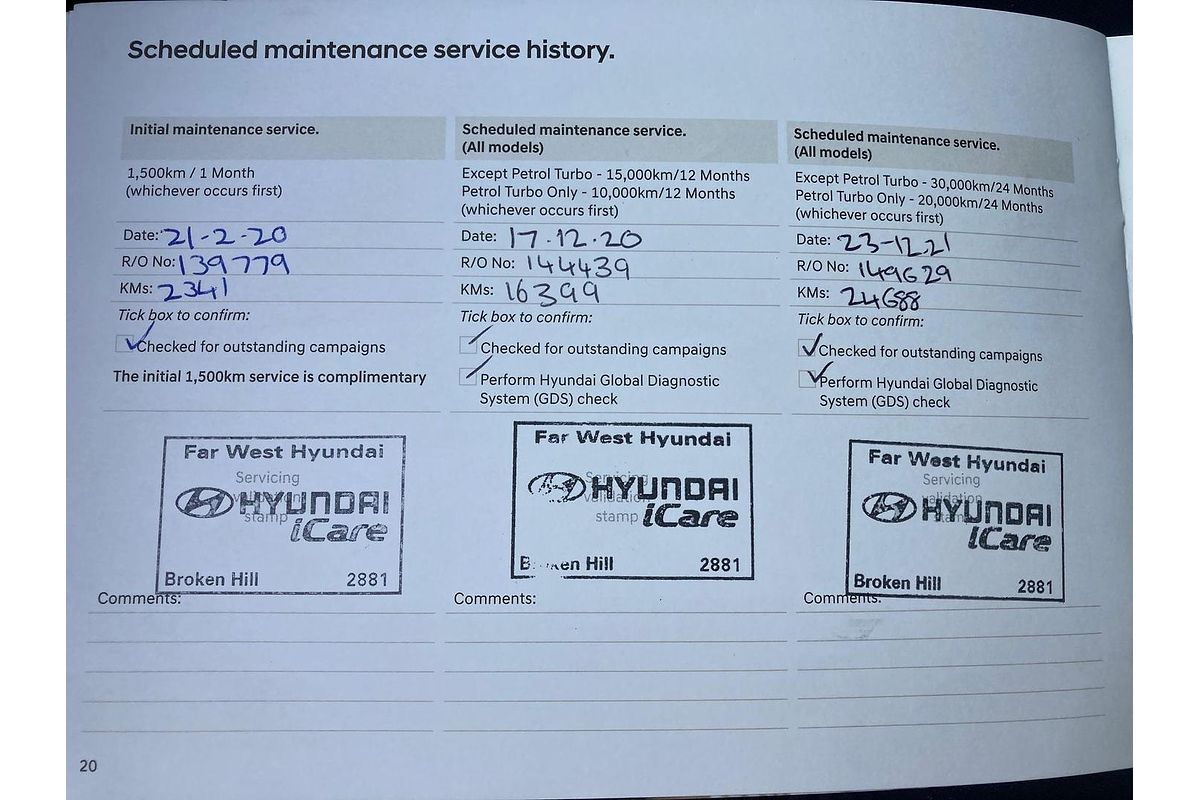 Scheduled maintenance service history.
Initial maintenance service.
1,500km / 1 Month
(whichever occurs first)
Date: 21-2-20
R/O No: 139779
KMs: 2341
Tick box to confirm:
Checked for outstanding campaigns
The initial 1,500km service is complimentary
Far West Hyundai
Servicing
validation
stamp
HYUNDAI
iCare
Broken Hill 2881
Comments:
Scheduled maintenance service.
(All models)
Except Petrol Turbo - 15,000km/12 Months
Petrol Turbo Only - 10,000km/12 Months
(whichever occurs first)
Date: 17.12.20
R/O No: 144439
KMs: 16399
Tick box to confirm:
Checked for outstanding campaigns
Perform Hyundai Global Diagnostic
System (GDS) check
Far West Hyundai
Servicing
validation
stamp
HYUNDAI
iCare
Hill 2881
Comments:
Scheduled maintenance service.
(All models)
Except Petrol Turbo - 30,000km/24 Months
Petrol Turbo Only - 20,000km/24 Months
(whichever occurs first)
Date: 23-12.21
R/O No: 149629
KMs: 24688
Tick box to confirm:
Checked for outstanding campaigns
Perform Hyundai Global Diagnostic
System (GDS) check
Far West Hyundai
Servicing
validation
stamp
HYUNDAI
iCare
Broken Hill 2881
Comments:
20